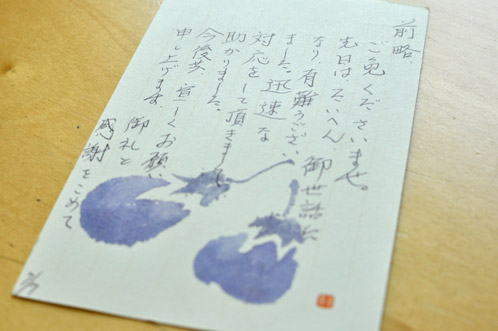 前略、
ご免くださいませ。
先日はたいへん、御世話に
なり、有難うござい
ました。迅速な
対応をして頂きまして
助かりました。
今後共、宜しくお願い
申し上げます。
御礼と
感謝をこめて